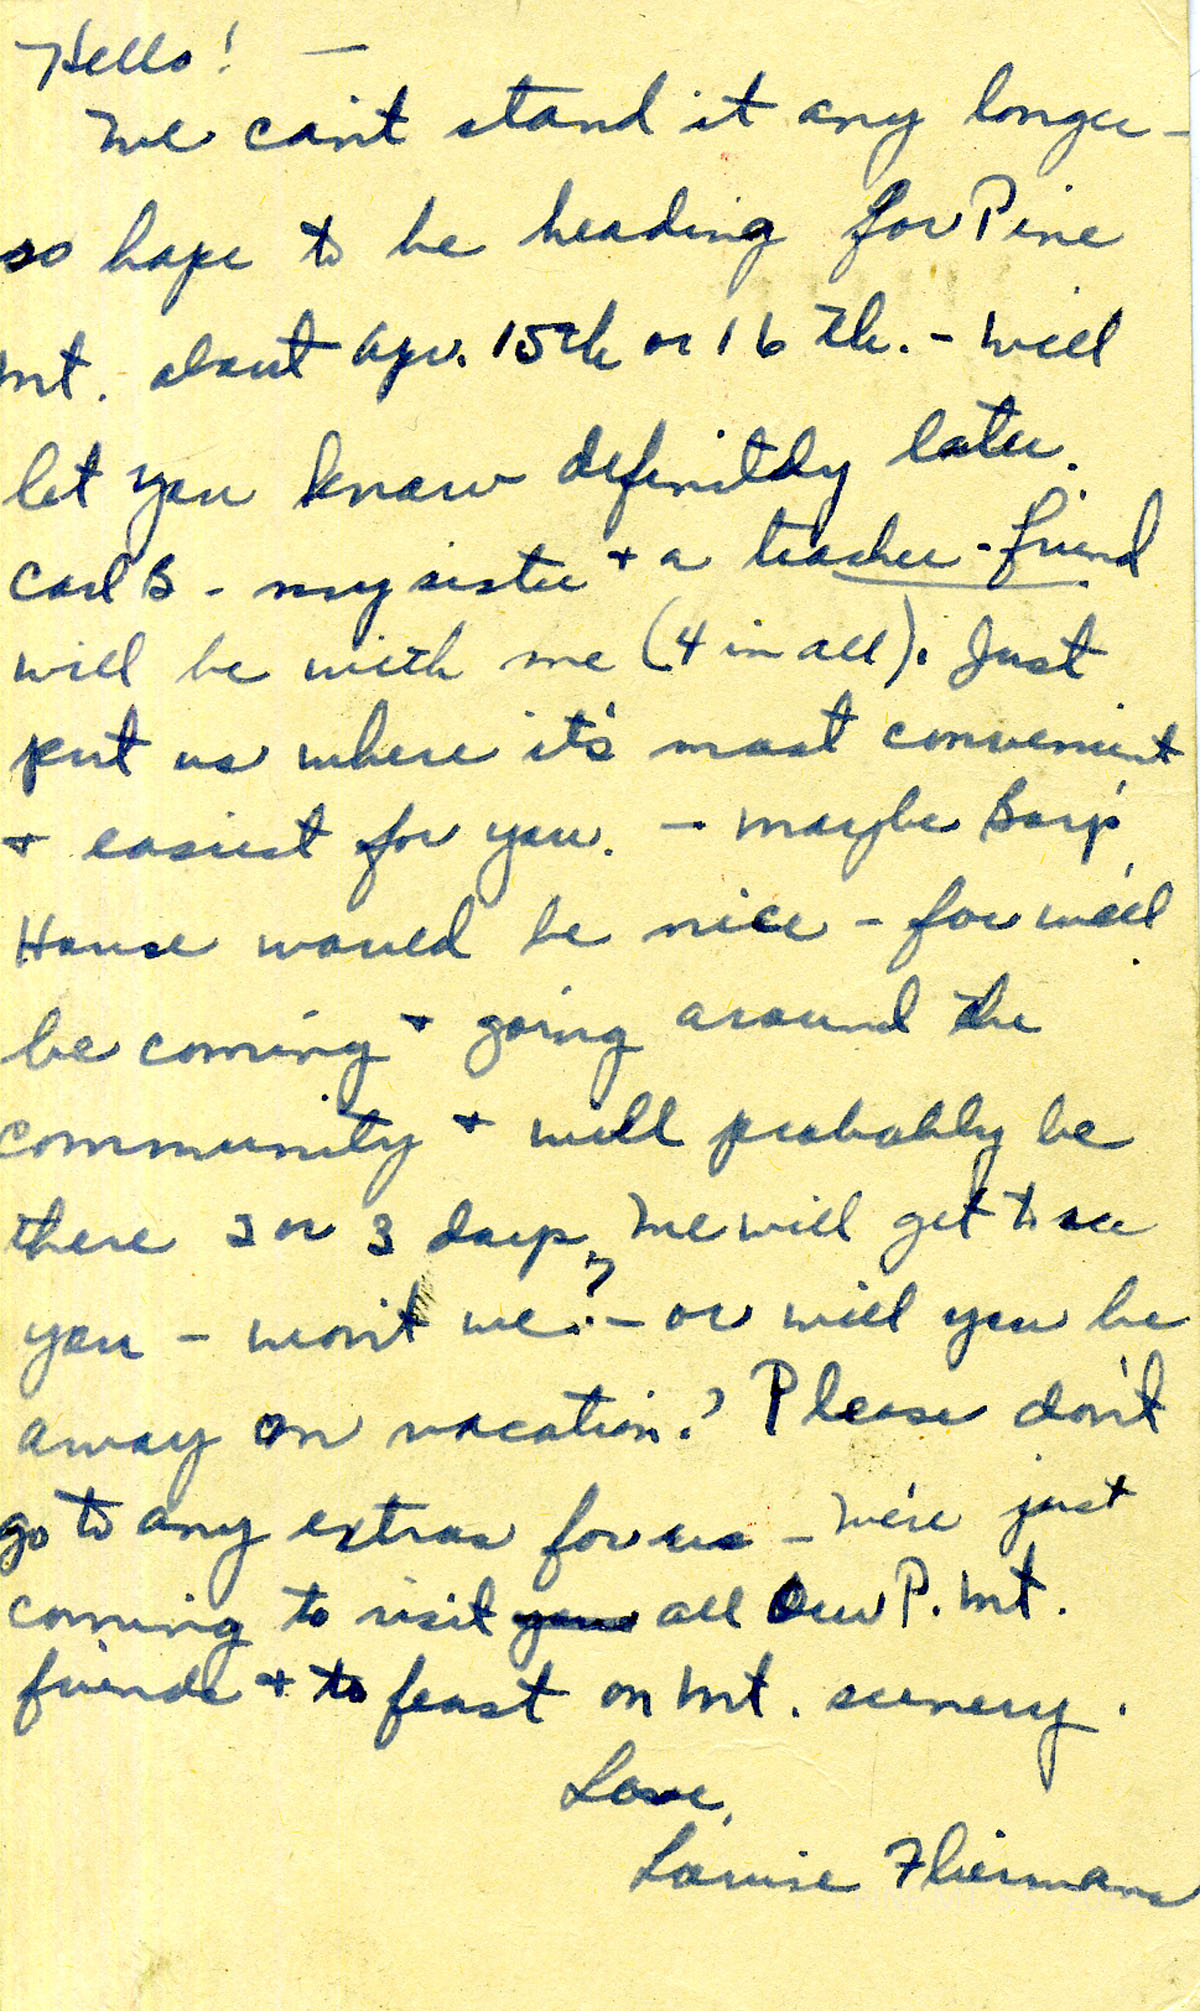 Hello! —
We can't stand it any longer -
so hope to be heading for Pine
Mt. about Apr. 15th or 16th. - Will
let you know definitely later.
Carl B - my sister + a teacher-friend
will be with me (4 in all). Just
put us where it's most convenient
+ easiest for you. - maybe Boys'
House would be nice - for we'll
be coming + going around the
community + will probably be
there 2 or 3 days, We will get to see
you - won't we? - or will you be
away on vacation? Please don't
go to any extras for us - We're just
coming to visit all our P. Mt.
friends + to feast on Mt. scenery.
Love,
Louise Fliermans